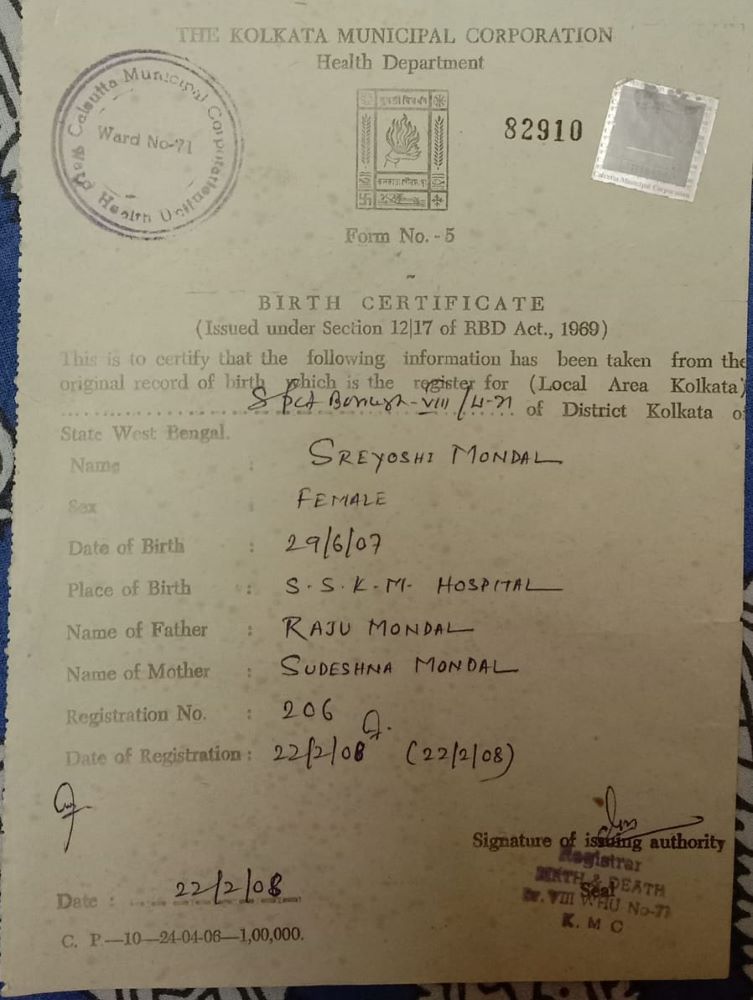 THE KOLKATA MUNICIPAL CORPORATION
Health Department
Calcutta Municipal Corporation
Ward No-71
Ward Health Unit
82910
Calcutta Municipal Corporation
Form No. - 5
BIRTH CERTIFICATE
(Issued under Section 12|17 of RBD Act., 1969)
This is to certify that the following information has been taken from the
original record of birth which is the register for (Local Area Kolkata)
Borough-VIII of District Kolkata o
State West Bengal.
Name : SREYOSHI MONDAL
Sex : FEMALE
Date of Birth : 29/6/07
Place of Birth : S.S.K.M. HOSPITAL
Name of Father : RAJU MONDAL
Name of Mother : SUDESHNA MONDAL
Registration No. : 206
Date of Registration : 22/2/08 (22/2/08)
Signature of issuing authority
Registrar
BIRTH & DEATH
Seal
Br. VIII WHU No-71
K. M C
Date : 22/2/08
C. P.—10—24-04-06—1,00,000.